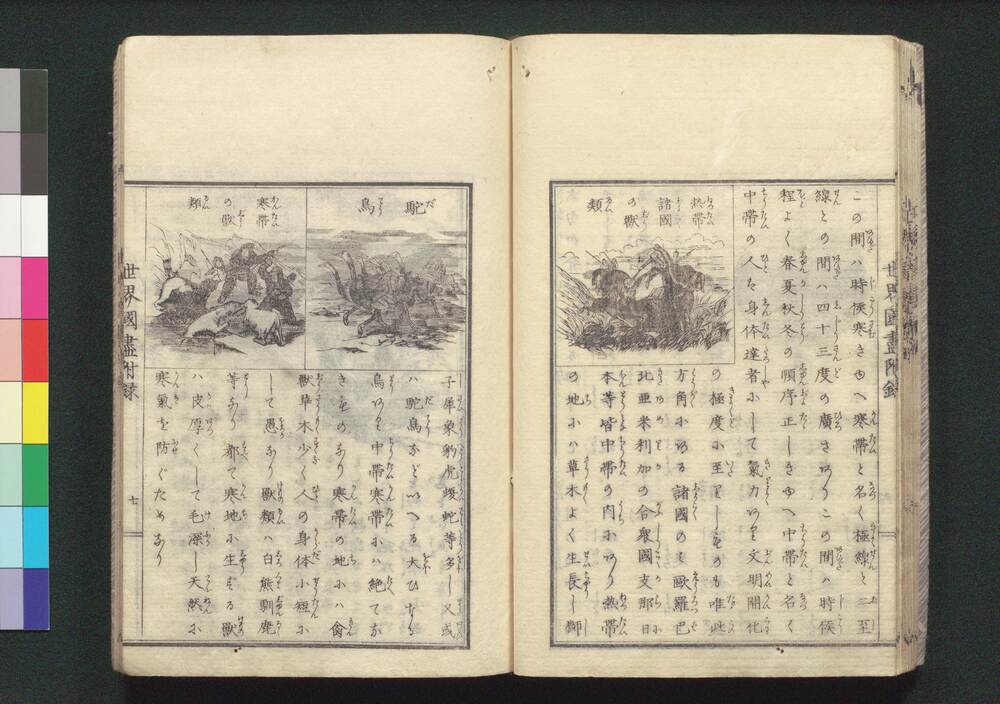 世界國盡附録
この間ハ時候寒きゆへ寒帶と名く極線と二至
線との間ハ四十三度の廣さありこの間ハ時候
程よく春夏秋冬の順序正しきゆへ中帶と名く
中帶の人は身体達者にして氣力あり文明開化
の極度に至りしものも唯此
方角にある諸國のミ歐羅巴
北亜米利加の合衆國支那日
本等皆中帶の内にあり熱帶
の地にハ草木よく生長し獅
熱帶
諸國
の獸
類
子犀象豹虎蝮蛇等多し又或
ハ駝鳥などいへる大ひなる
鳥あり中帶寒帶にハ絶てな
きものなり寒帶の地にハ禽
獸草木少く人の身体小短に
して愚なり獸類ハ白熊馴鹿
等なり都て寒地に生ずる獸
ハ皮厚くして毛深し天然に
寒氣を防ぐためなり
駝鳥
寒帶
の獸
類
世界國盡附録
七